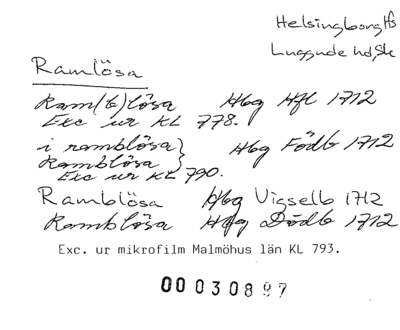 Helsingborg Hfs
Luggude hd, Sk
Ramlösa
Ram(b)lösa Hbg Hfl 1712
Exc ur KL 778.
i ramblösa} Hbg Födb 1712
Ramblösa
Exc ur KL 790.
Ramblösa Hbg Vigselb 1712
Ramblösa Hbg Dödb 1712
Exc. ur mikrofilm Malmöhus län KL 793.
00030897